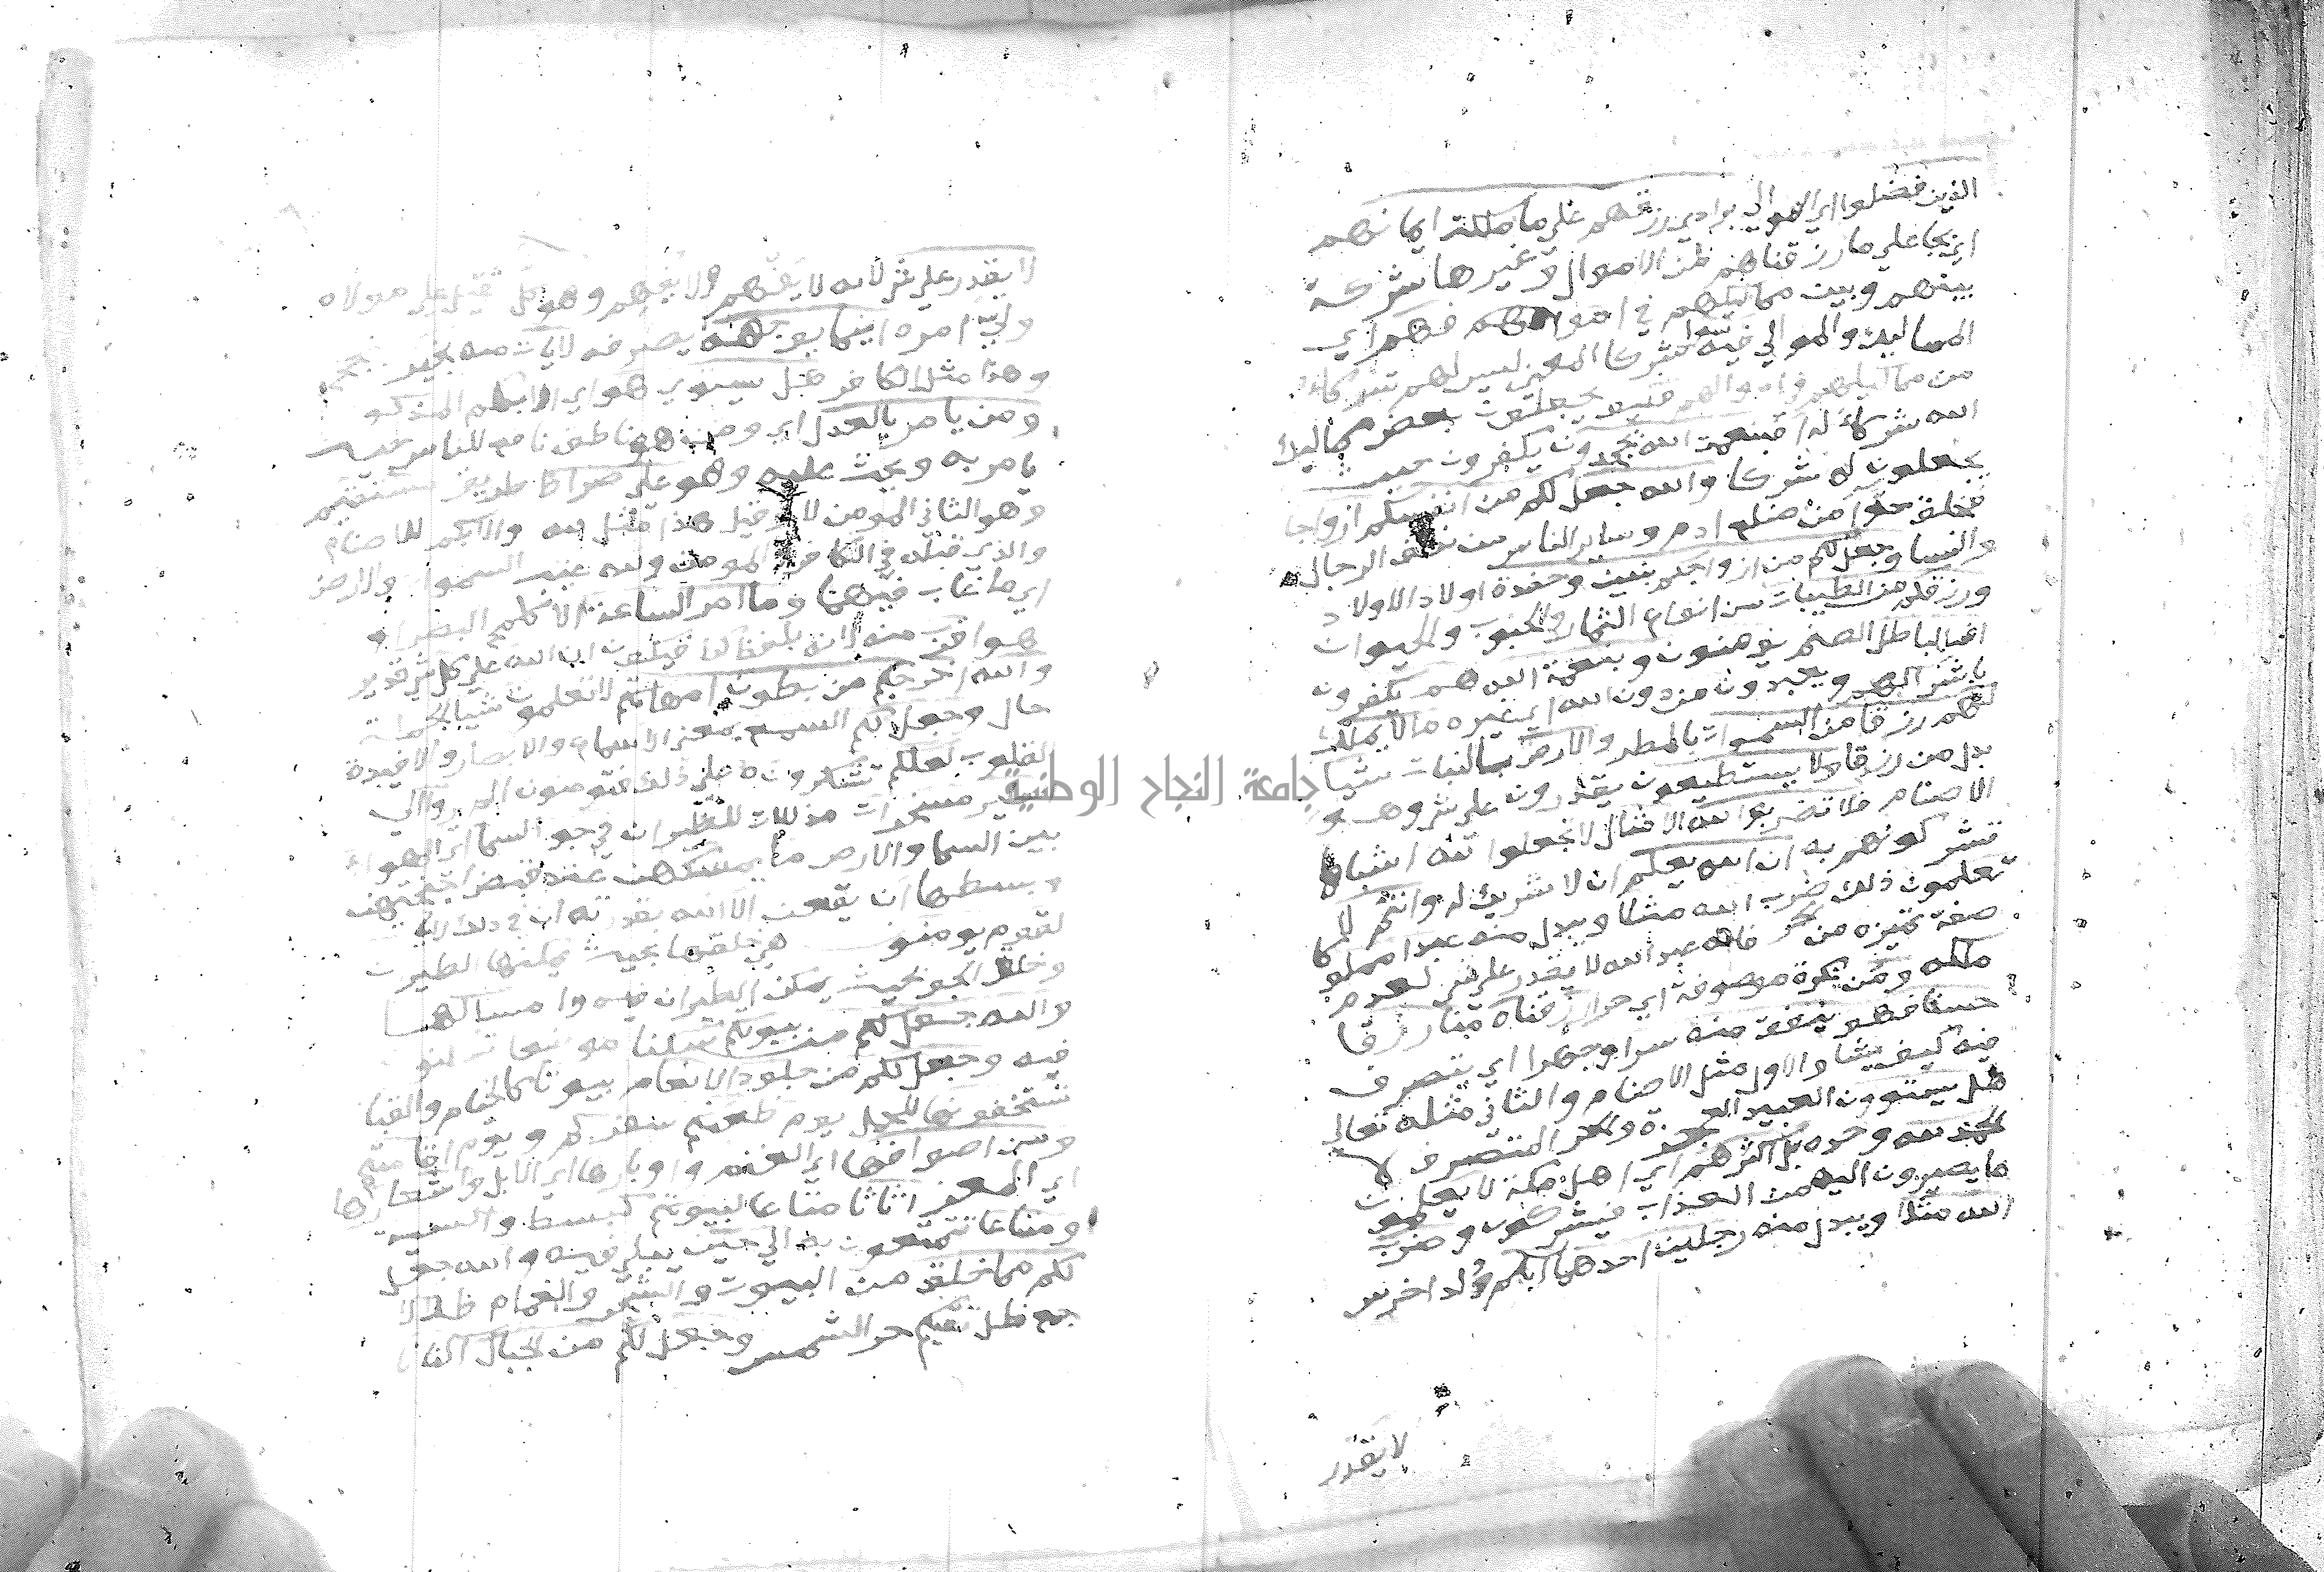 الذين فضلوا اي الموالي برادي رزقهم علي ما ملكت ايمانهم
اي بجاعلي ما رزقناهم من الاموال وغيرها شركة
بينهم وبين مماليكهم في اموالهم فهم اي
المماليك والموالي فيه سوا شركا المعني ليس لهم شركاء
من مماليكهم في اموالهم فكيف يجعلون بعض مماليك
الله شركاء له افبنعمة الله يجحدون يكفرون حيث
يجعلون له شركا والله جعل لكم من انفسكم ازواجا
فخلق حوا من ضلع ادم وساير الناس من نطف الرجال
والنسا وجعل لكم من ازواجكم بنين وحفدة اولاد الاولاد
ورزقكم من الطيبات من انواع الثمار والحبوب والحيوان
افبالباطل الصنم يومنون وبنعمة الله هم يكفرون
باشراكهم ويعبدون من دون الله اي غيره ما لا يملك
لهم رزقا من السموات بالمطر والارض بالنبات شيا
بدل من رزقا ولا يستطيعون يقدرون علي شي وهو
الاصنام فلا تضربوا لله الامثال لا تجعلوا لله اشباها
تشركونهم به ان الله يعلم ان لا شريك له وانتم لا
تعلمون ذلك ضرب الله مثلا ويبدل منه عبدا مملوكا
صفة تميزه من الحر فانه عبد الله لا يقدر علي شي لعدم
ملكه ومن نكرة موصوفة اي حرا رزقناه منا رزقا
حسنا فهو ينفق منه سرا وجهرا اي يتصرف
فيه كيف يشا والاول مثل الاصنام والثاني مثله تعالي
هل يستوون العبيد العجزة والحر المتصرف لا
الحمد لله وحده بل اكثرهم اي اهل مكة لا يعلمون
ما يصيرون اليه من العذاب فيشركون وضرب
الله مثلا ويبدل منه رجلين احدهما ابكم ولد اخرس
لا يقدر
لا يقدر علي شي لانه لا يفهم ولا يفهم وهو كل ثقيل علي مولاه
ولي امره اينما يوجهه يصرفه لا يات منه بخير
وهذا مثل الكافر هل يستوي هو اي الابكم المذكور
ومن يامر بالعدل اي ومن هو ناطق نافع للناس حيث
يامر به ويحث عليه وهو علي صراط طريق مستقيم
وهو الثاني المومن لا وقيل هذا مثل لله والابكم للاصنام
والذي قبله في الكافر والمومن ولله غيب السموات والارض
اي ما غاب فيهما وما امر الساعة الا كلمح البصر او
هو اقرب منه لانه بلفظ كن فيكون ان الله علي كل شي قدير
والله اخرجكم من بطون امهاتكم لا تعلمون شيا الجملة
حال وجعل لكم السمع بمعني الاسماع والابصار والافيدة
القلوب لعلكم تشكرونه علي ذلك فتومنون الم يروا الي
الطير مسخرات مذللات للطيران في جو السما اي الهواء
بين السما والارض ما يمسكهن عند قبض اجنحتهن
وبسطها ان يقعن الا الله بقدرته ان في ذلك لايات
لقوم يومنون هي خلقها بحيث يمكنها الطيران
وخلق الجو بحيث يمكن الطيران فيه وامساكها
والله جعل لكم من بيوتكم سكنا موضعا تسكنون
فيه وجعل لكم من جلود الانعام بيوتا كالخيام والقباب
تستخفونها للحمل يوم ظعنكم سفركم ويوم اقامتكم
ومن اصوافها اي الغنم واوبارها اي الابل واشعارها
اي المعز اثاثا متاعا لبيوتكم كبسط واكسية
ومتاعا تتمتعون به الي حين يبلي فيه والله جعل
لكم مما خلق من البيوت والشجر والغمام ظلالا
جمع ظل تقيكم حر الشمس وجعل لكم من الجبال اكنانا
جامعة النجاح الوطنية